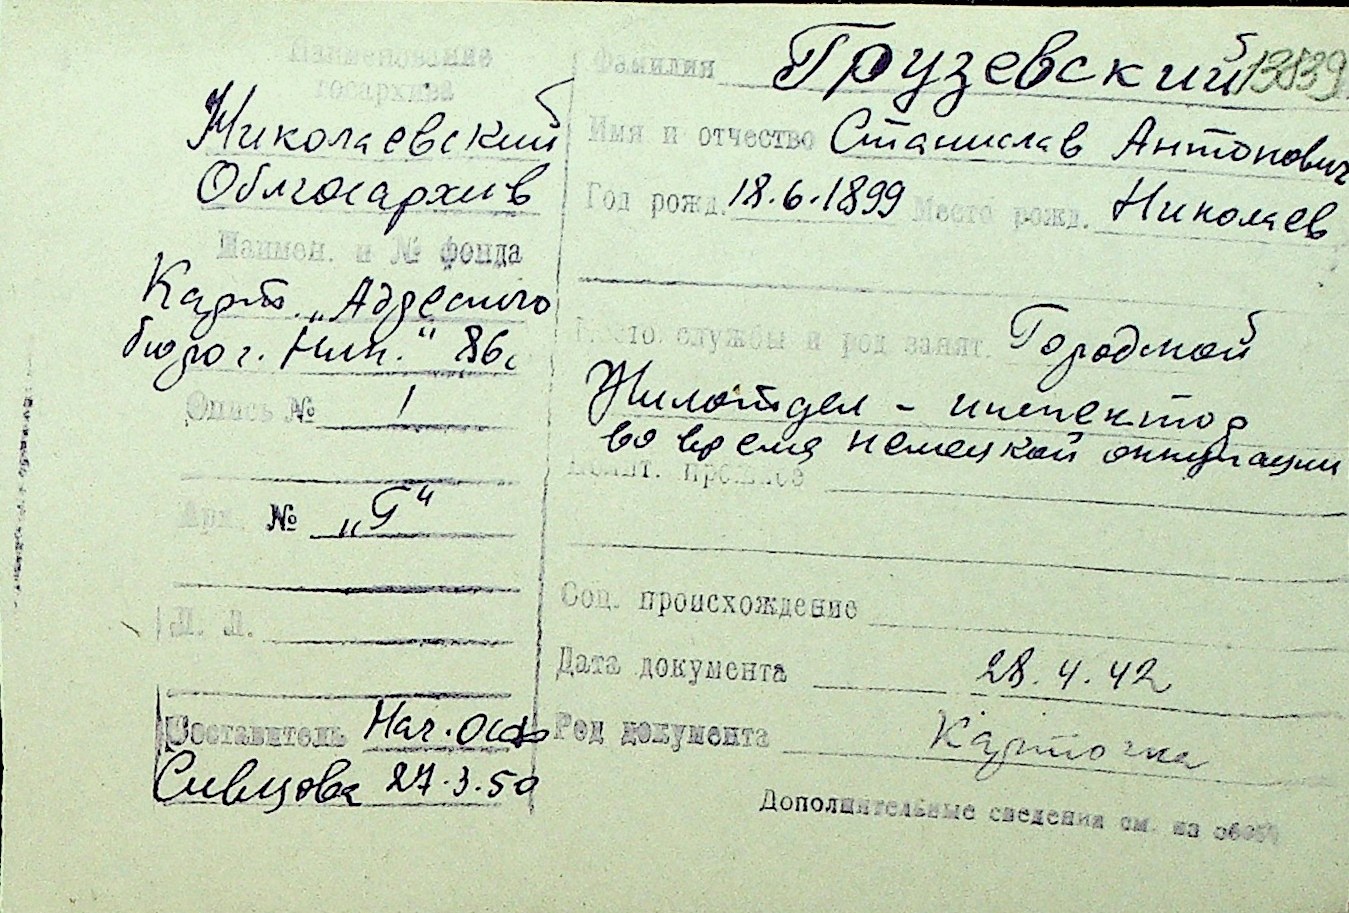 Наименование
госархива
Николаевский
Облгосархив
Наимен. и № фонда
Карт. „Адресного
бюро г. Ник." 86с
Опись № 1
Арх. № „Г"
Л. Л.
Составитель Нач. ОСФ
Сивцова 27.3.50
Фамилия Грузевский 13839
Имя и отчество Станислав Антонович
Год рожд. 18.6.1899 Место рожд. Николаев
Место службы и род занят. Городской
Жилотдел - инспектор
во время немецкой оккупации
Занят. прошлое
Соц. происхождение
Дата документа 28.4.42
Род документа Карточка
Дополнительные сведения см. на обор.